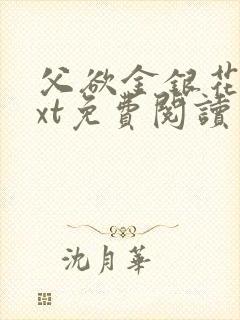 父欲金銀花
xt免費閱讀
沈月華